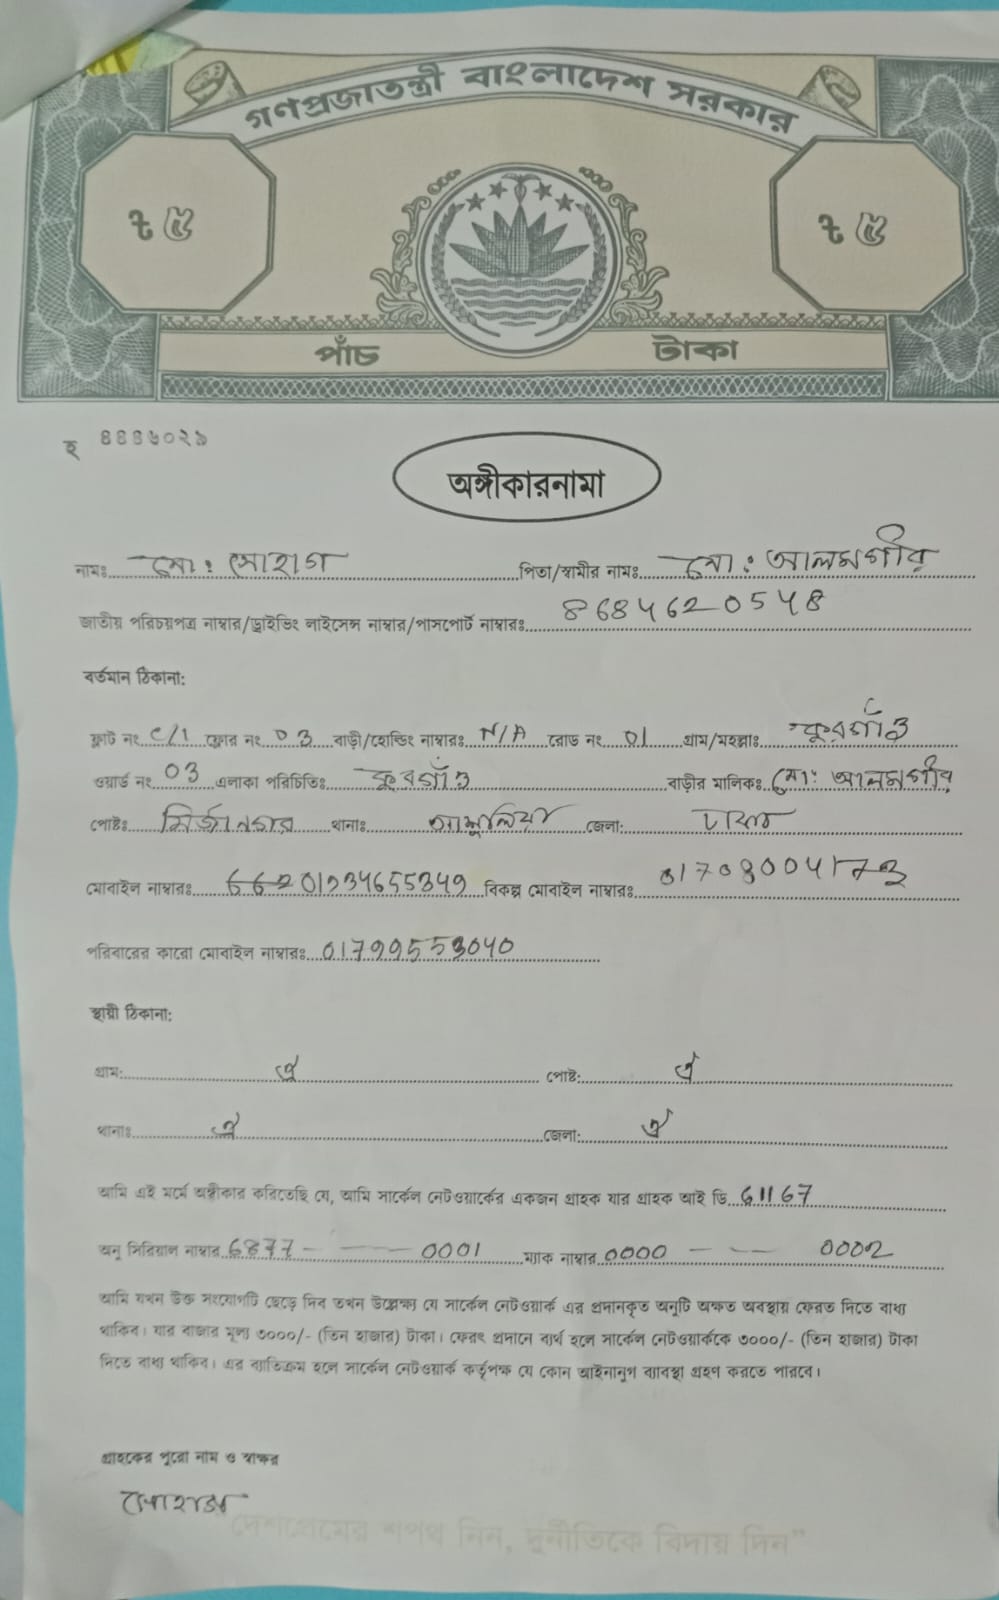 গণপ্রজাতন্ত্রী বাংলাদেশ সরকার
৳ ৫ ৳ ৫
পাঁচ টাকা
হ ৪৪৪৬০২৯
অঙ্গীকারনামা
নামঃ মো: সোহাগ পিতা/স্বামীর নামঃ মো: আলমগীর
জাতীয় পরিচয়পত্র নাম্বার/ড্রাইভিং লাইসেন্স নাম্বার/পাসপোর্ট নাম্বারঃ 8684620548
বর্তমান ঠিকানা:
ফ্লাট নং C/1 ফ্লোর নং 03 বাড়ী/হোল্ডিং নাম্বারঃ N/A রোড নং 01 গ্রাম/মহল্লাঃ কুরগাঁও
ওয়ার্ড নং 03 এলাকা পরিচিতিঃ কুরগাঁও বাড়ীর মালিকঃ মো: আলমগীর
পোষ্টঃ মির্জানগর থানাঃ আশুলিয়া জেলা: ঢাকা
মোবাইল নাম্বারঃ 01934655349 বিকল্প মোবাইল নাম্বারঃ
পরিবারের কারো মোবাইল নাম্বারঃ 01799553040
স্থায়ী ঠিকানা:
গ্রাম: ঐ পোষ্ট: ঐ
থানাঃ ঐ জেলা: ঐ
আমি এই মর্মে অঙ্গীকার করিতেছি যে, আমি সার্কেল নেটওয়ার্কের একজন গ্রাহক যার গ্রাহক আই ডি 61167
অনু সিরিয়াল নাম্বার 6877 - — 0001 ম্যাক নাম্বার 0000 — — 0002
আমি যখন উক্ত সংযোগটি ছেড়ে দিব তখন উল্লেক্ষ্য যে সার্কেল নেটওয়ার্ক এর প্রদানকৃত অনুটি অক্ষত অবস্থায় ফেরত দিতে বাধ্য
থাকিব। যার বাজার মূল্য ৩০০০/- (তিন হাজার) টাকা। ফেরৎ প্রদানে ব্যর্থ হলে সার্কেল নেটওয়ার্ককে ৩০০০/- (তিন হাজার) টাকা
দিতে বাধ্য থাকিব। এর ব্যতিক্রম হলে সার্কেল নেটওয়ার্ক কর্তৃপক্ষ যে কোন আইনানুগ ব্যাবস্থা গ্রহণ করতে পারবে।
গ্রাহকের পুরো নাম ও স্বাক্ষর
সোহাগ
"দেশপ্রেমের শপথ নিন, দুর্নীতিকে বিদায় দিন"